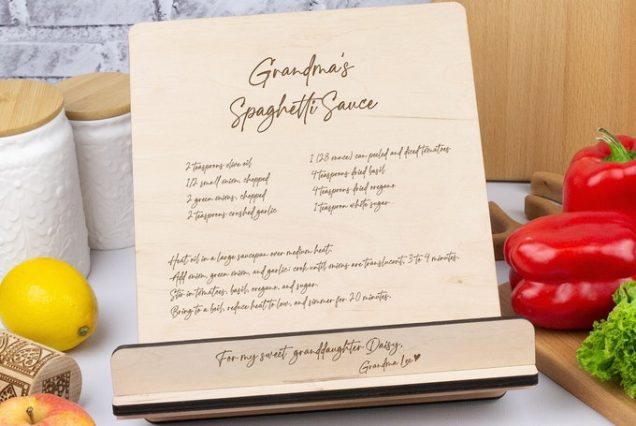 Grandma's
Spaghetti Sauce
2 teaspoons olive oil
1/2 small onion, chopped
2 green onions, chopped
2 teaspoons crushed garlic
1 (28 ounce) can peeled and diced tomatoes
4 teaspoons dried basil
4 teaspoons dried oregano
1 teaspoon white sugar
Heat oil in a large saucepan over medium heat.
Add onion, green onion, and garlic; cook until onions are translucent, 3 to 4 minutes.
Stir in tomatoes, basil, oregano, and sugar.
Bring to a boil, reduce heat to low, and simmer for 20 minutes.
For my sweet granddaughter Daisy,
Grandma Lee